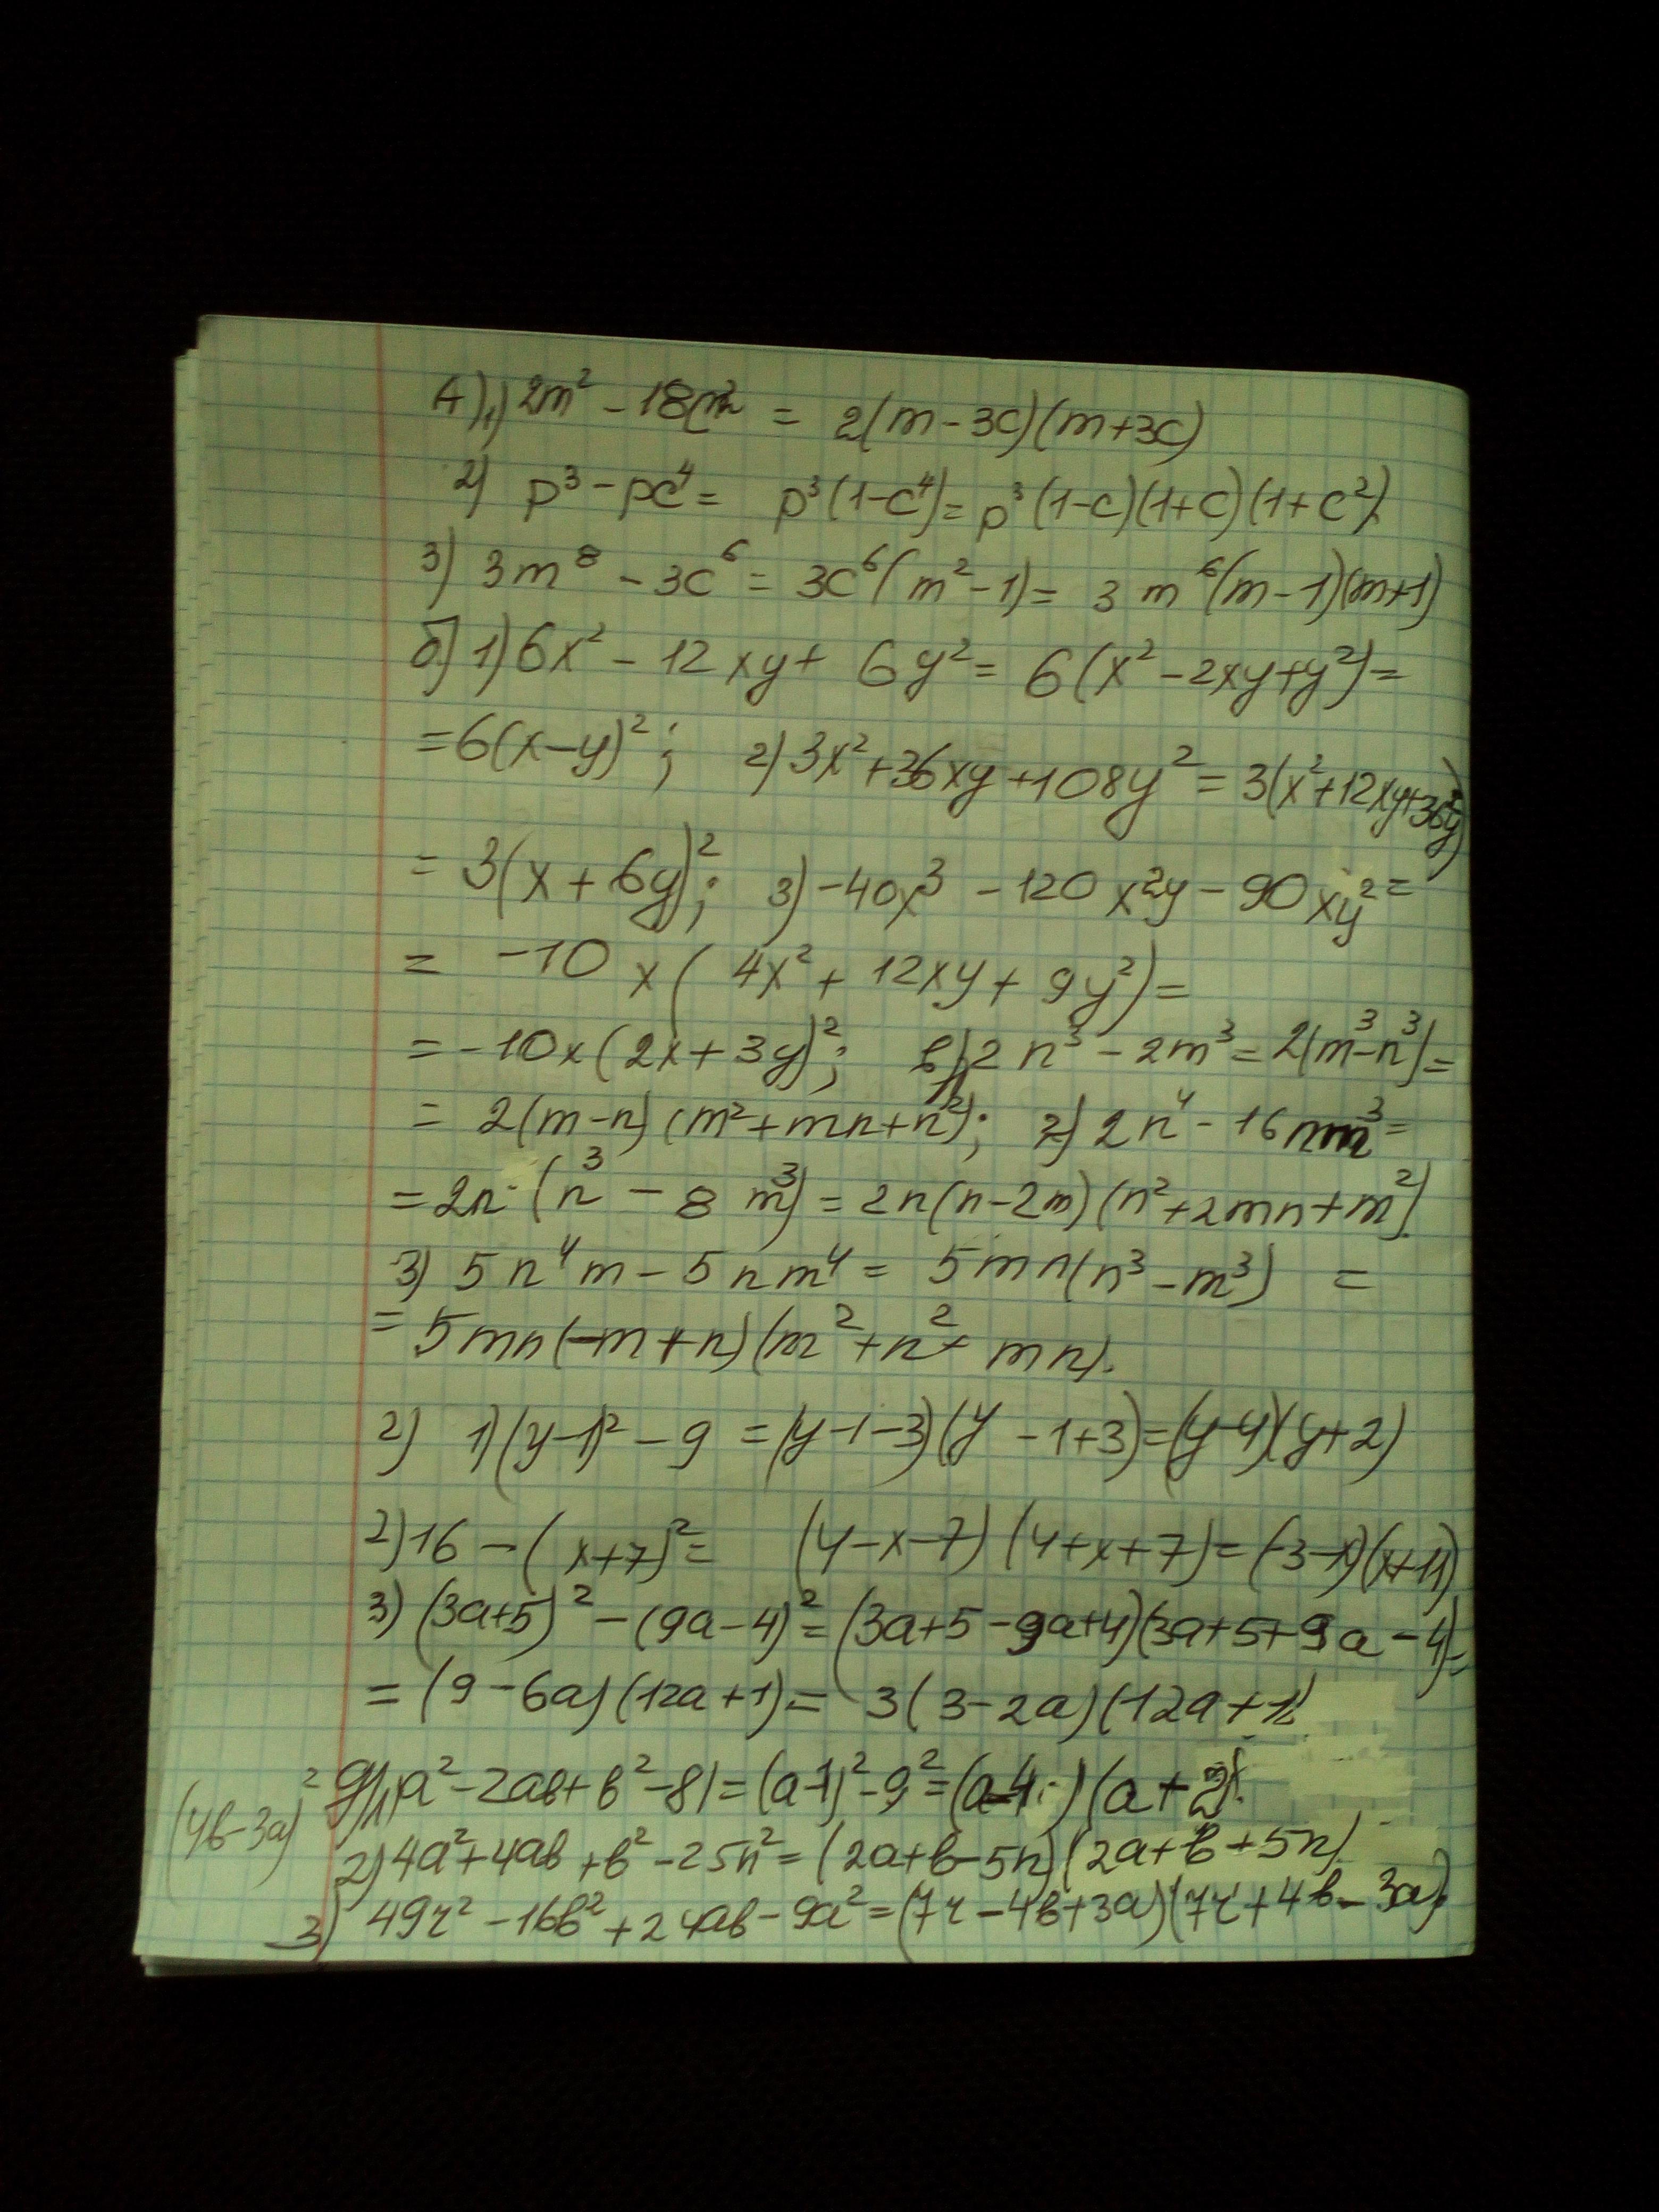 А) 1) 2m² - 18c² = 2(m-3c)(m+3c)
2) p³-pc⁴ = p³(1-c⁴) = p³(1-c)(1+c)(1+c²)
3) 3m⁸ - 3c⁶ = 3c⁶(m²-1) = 3m⁶(m-1)(m+1)
б) 1) 6x² - 12xy + 6y² = 6(x² - 2xy+y²) =
= 6(x-y)²; 2) 3x²+36xy+108y² = 3(x²+12xy+36y²)
= 3(x+6y)²; 3) -40x³ - 120x²y - 90xy² =
= -10x(4x² + 12xy + 9y²) =
= -10x(2x+3y)²; в) 1) 2n³ - 2m³ = 2(m³-n³) =
= 2(m-n)(m²+mn+n²); 2) 2n⁴ - 16nm³ =
= 2n(n³ - 8m³) = 2n(n-2m)(n²+2mn+m²)
3) 5n⁴m - 5nm⁴ = 5mn(n³-m³) =
= 5mn(-m+n)(m²+n²+mn).
г) 1) (y-1)² - 9 = (y-1-3)(y-1+3) = (y-4)(y+2)
2) 16 - (x+7)² = (4-x-7)(4+x+7) = (-3-x)(x+11)
3) (3a+5)² - (9a-4)² = (3a+5-9a+4)(3a+5+9a-4) =
= (9-6a)(12a+1) = 3(3-2a)(12a+1)
g) 1) a²-2ab+b²-81 = (a-1)²-9² = (a-4)(a+2).
2) 4a²+4ab+b²-25n² = (2a+b-5n)(2a+b+5n)
(4b-3a)²
3) 49r² - 16b² + 24ab - 9a² = (7r-4b+3a)(7r+4b-3a).